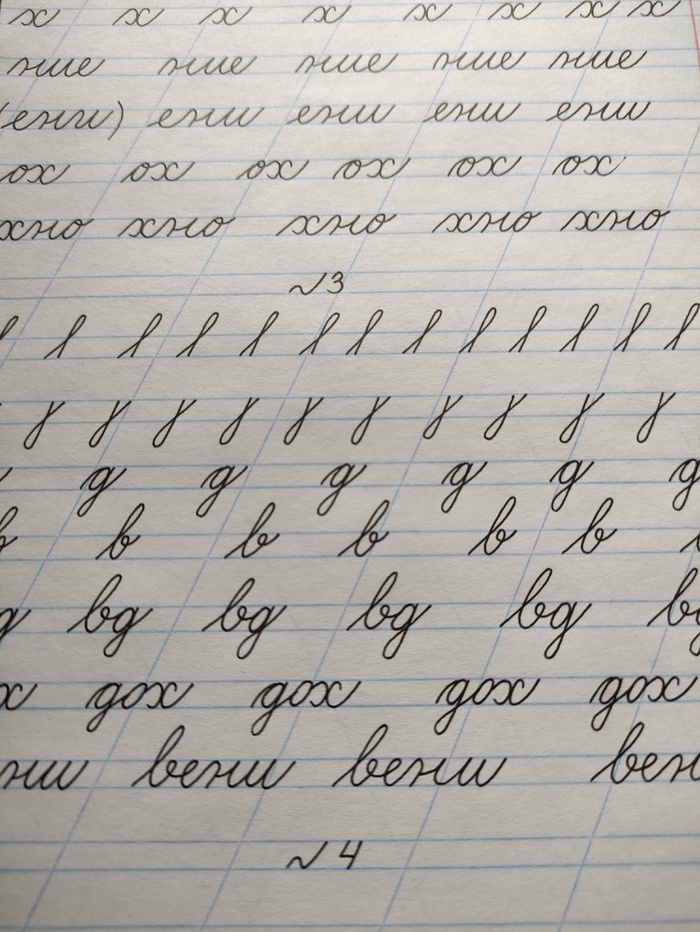 х х х х х х х х
ние ние ние ние ние
(ени) ени ени ени ени
ох ох ох ох ох ох
хно хно хно хно хно
№3
l l l l l l l l l l l l l
γ γ γ γ γ γ γ γ γ γ
д д д д д д
в в в в в в
д вд вд вд вд вд
х дох дох дох дох
ни вени вени вен
№4